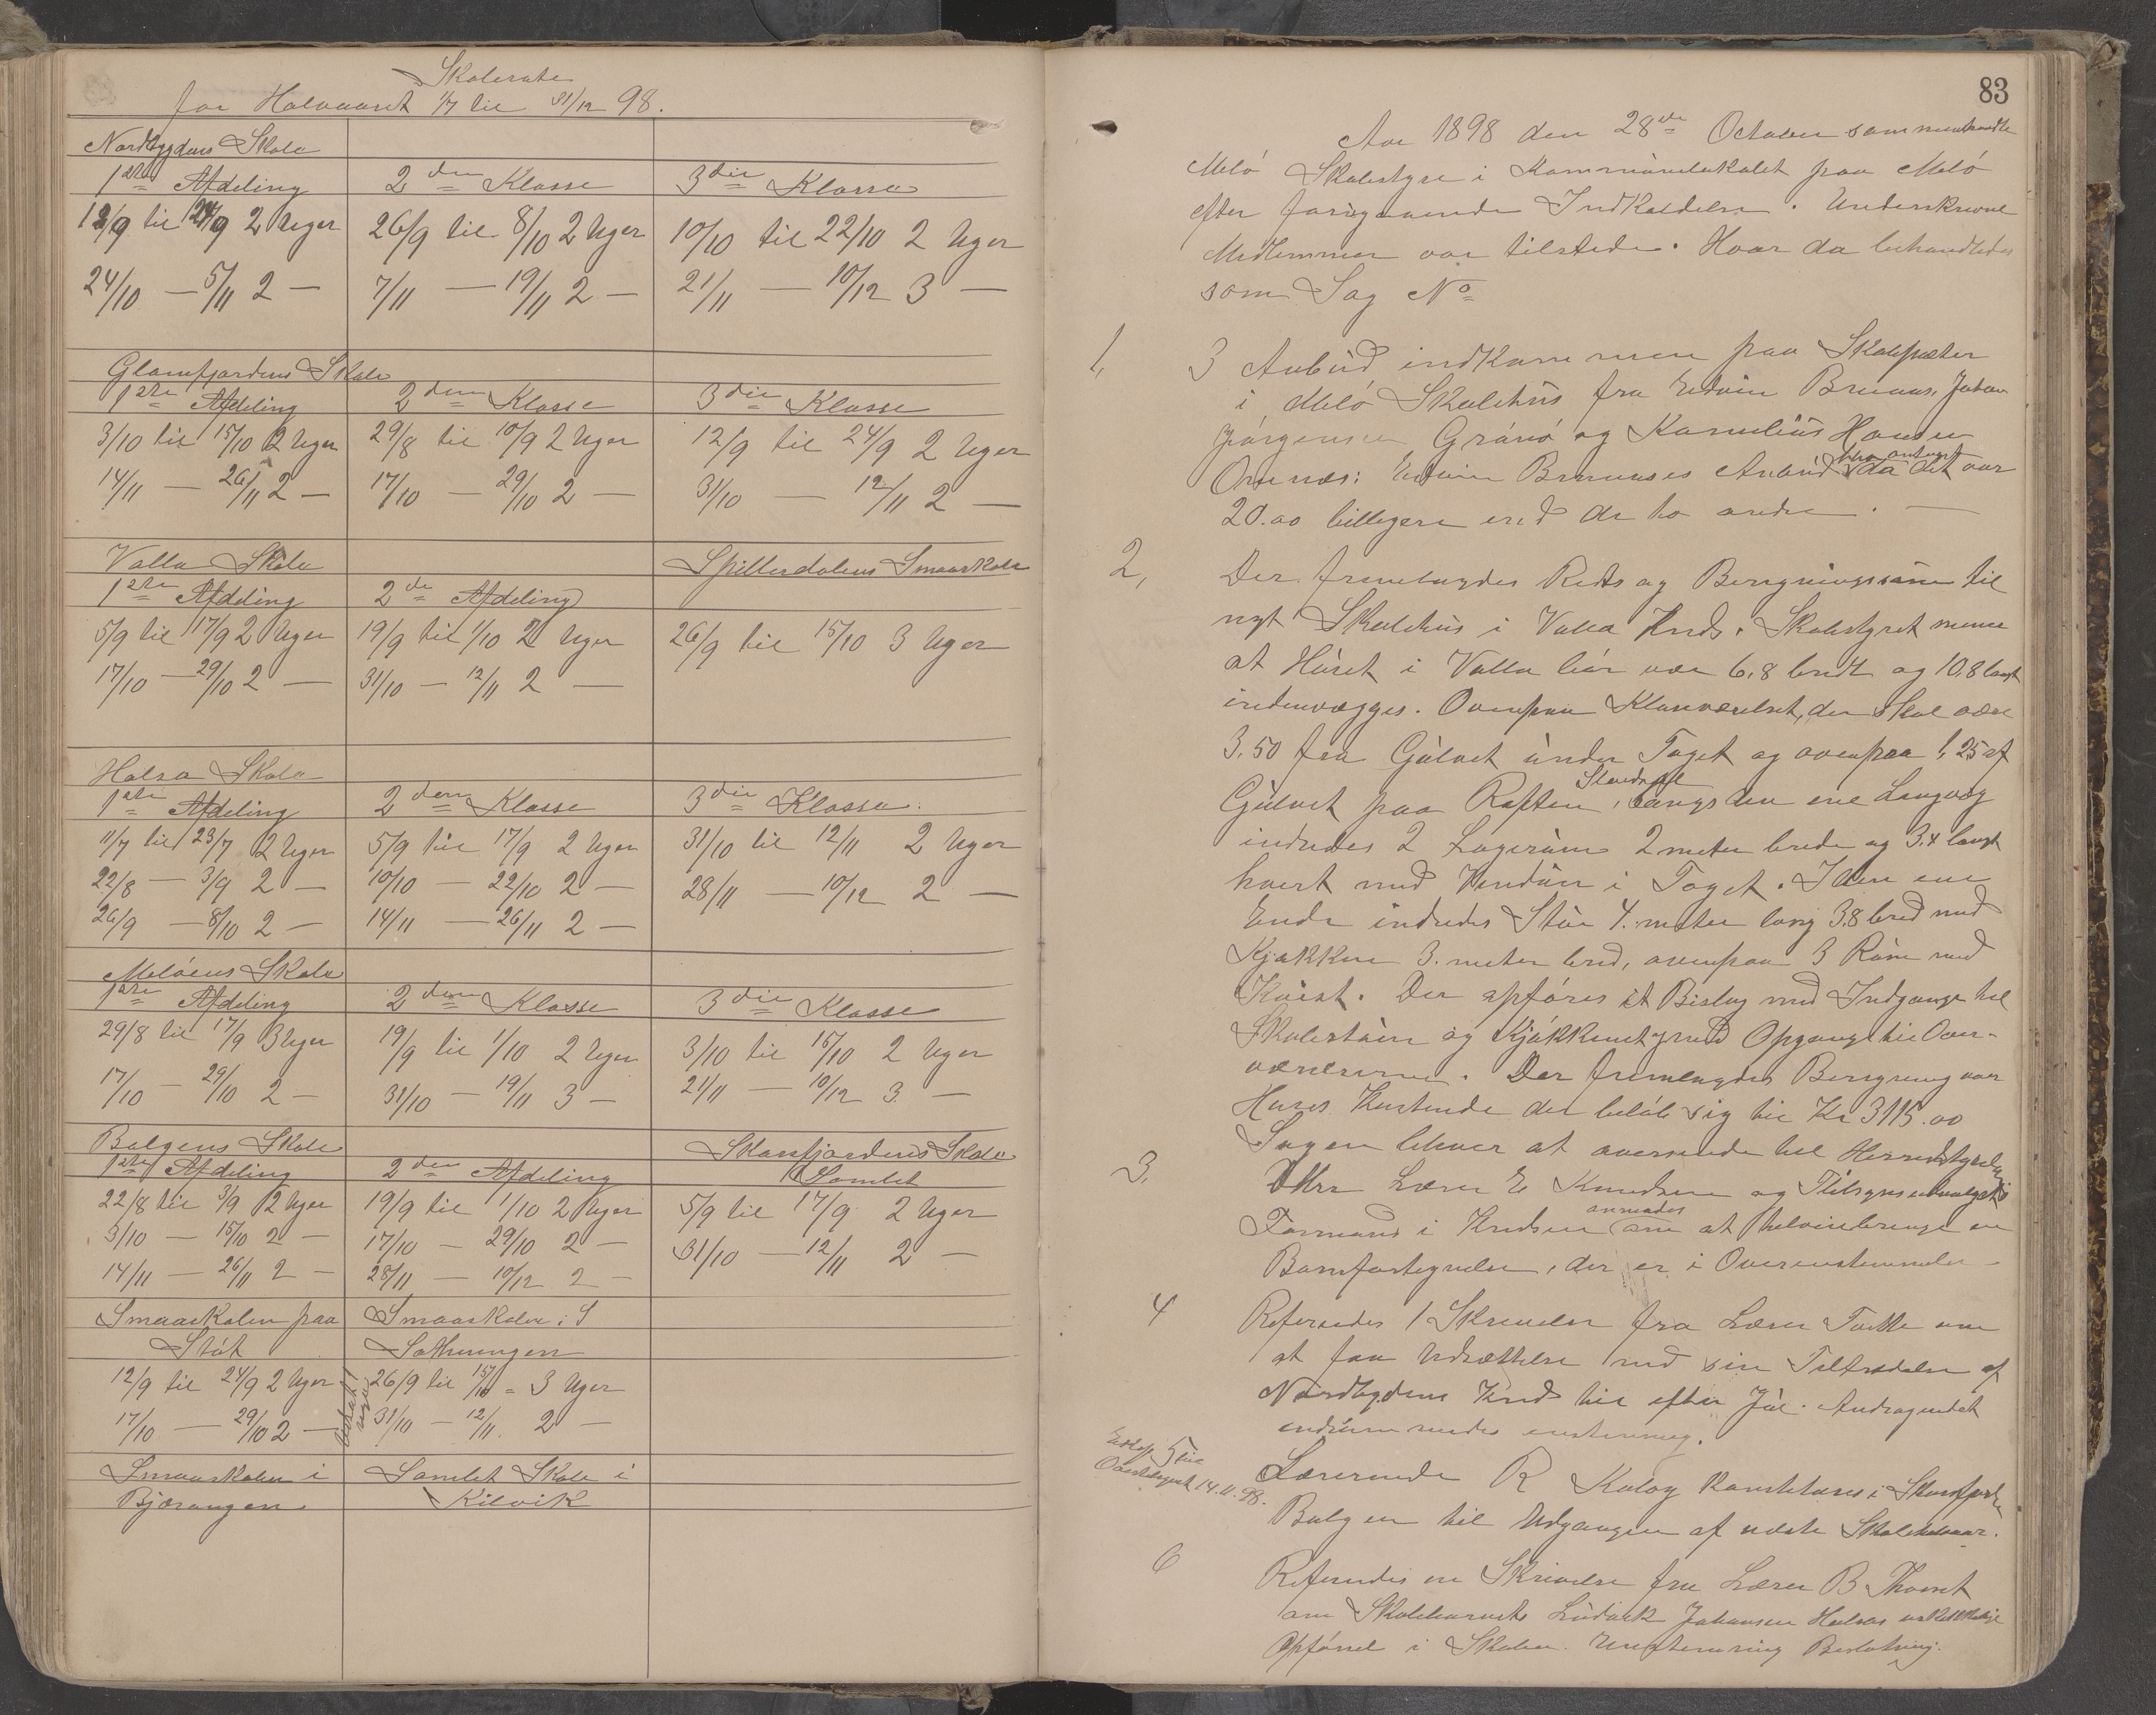 Skolerute
for Halvaaret 1/7 til 31/12 98.
Nordbygdens Skole
1ste Afdeling 2den Klasse 3die Klasse
12/9 til 24/9 2 Uger 26/9 til 8/10 2 Uger 10/10 til 22/10 2 Uger
24/10 — 5/11 2 — 7/11 — 19/11 2 — 21/11 — 10/12 3 —
Glomfjordens Skole
1ste Afdeling 2den Klasse 3die Klasse
3/10 til 15/10 2 Uger 29/8 til 10/9 2 Uger 12/9 til 24/9 2 Uger
14/11 — 26/11 2 — 17/10 — 29/10 2 — 31/10 — 12/11 2 —
Valla Skole Spilderdalens Smaaskole
1ste Afdeling 2de Afdeling
5/9 til 17/9 2 Uger 19/9 til 1/10 2 Uger 26/9 til 15/10 3 Uger
17/10 — 29/10 2 — 31/10 — 12/11 2 —
Halsa Skole
1ste Afdeling 2den Klasse 3die Klasse
11/7 til 23/7 2 Uger 5/9 til 17/9 2 Uger 31/10 til 12/11 2 Uger
22/8 — 3/9 2 — 10/10 — 22/10 2 — 28/11 — 10/12 2 —
26/9 — 8/10 2 — 14/11 — 26/11 2 —
Melöens Skole
1ste Afdeling 2den Klasse 3die Klasse
29/8 til 17/9 3 Uger 19/9 til 1/10 2 Uger 3/10 til 15/10 2 Uger
17/10 — 29/10 2 — 31/10 — 19/11 3 — 21/11 — 10/12 3 —
Bolgens Skole Skarsfjordens Skole
1ste Afdeling 2den Afdeling Samlet
22/8 til 3/9 2 Uger 19/9 til 1/10 2 Uger 5/9 til 17/9 2 Uger
3/10 — 15/10 2 — 17/10 — 29/10 2 — 31/10 — 12/11 2 —
14/11 — 26/11 2 — 28/11 — 10/12 2 —
Smaaskolen paa Smaaskolen i S
Stöt Sathuungen
12/9 til 24/9 2 Uger 26/9 til 15/10 = 3 Uger
17/10 — 29/10 2 — 31/10 — 12/11 2 —
Smaaskolen i Samlet Skole i
Bjærangen Kilvik
83
Aar 1898 den 28de October sammentraadte
Melö Skolestyre i Kommunelokalet paa Melö
efter forudgaaende Indkaldelse. Underskrevne
Medlemmer var tilstede. Hvor da behandledes
som Sag No
1, 3 Anbud indkommen paa Skolepulter
i Melö Skolehus fra Edvin Bruaas, Johan
Jörgensen Grönö og Kornelius Hansen
Ørnes: Edvin Bruaases Anbud blev antaget da det var
20.00 billigere end de to andre.
2, Der fremlagdes Rids og Beregning til
nyt Skolehus i Valla Kreds. Skolestyret mener
at Huset i Valla bör være 6,8 bredt og 10,8 langt
indenvægges. Ovenpaa Klasseværelset, der skal være
3,50 fra Gulvet under Taget og ovenpaa 1,25 af
Gulvet paa Raften, langs den ene Langvæg
indredes 2 Lagerum 2 meter brede og 3.4 langt
hvert med Vinduer i Taget. I den ene
Ende indredes Stue 4. meter lang 3.8 bred med
Kjøkken 3. meter bred, ovenpaa 3 Rum med
Kvist. Der opföres et Bislag med Indgange til
Skolestuen og Kjøkkenet med Opgange til Over-
værelserne. Der fremlagdes Beregning over
Huses Kostende der beløb sig til Kr 3115.00
Sagen bliver at oversende til Herredsstyrelsen
3, Lærer E Knudsen og Tilsynsudvalgets
Formand i Kredsen anmodes om at tilveiebringe en
Barnefortegnelse, der er i Overensstemmelse
4 Refereredes 1 Skrivelse fra Lærer om
at faa Udsættelse med sin Tiltrædelse af
Nordbygdens Kreds til efter Jul. Andragendet
enstemmig.
5 Lærerinde R Kolag konstitueres i Skarsfjorden
14.11.98. Bolgen til Udgangen af næste Skolehalvaar.
6 Refereredes en Skrivelse fra Lærer B
om Skolebarnets Ludvik Johansen Halsas
Opförsel i Skolen. Beslutning.